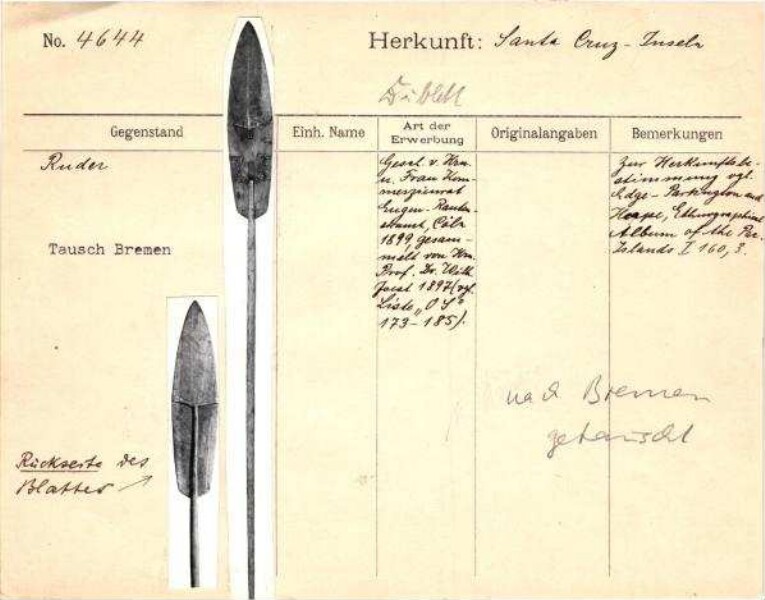 No. 4644
Herkunft: Santa Cruz-Inseln
Dublett
Gegenstand
Einh. Name
Art der
Erwerbung
Originalangaben
Bemerkungen
Ruder
Tausch Bremen
Rückseite des
Blattes
Gesch. v. Hrn.
u. Frau Kom-
merzienrat
Eugen Rauten-
strauch, Cöln
1899, gesam-
melt von Hrn.
Prof. Dr. Wilh.
Joest 1897 (vgl.
Liste "OS"
173-185).
nach Bremen
getauscht
Zur Herkunftsbe-
stimmung vgl.
Edge-Partington and
Heape, Ethnographical
Album of the Pac.
Islands I 160, 3.